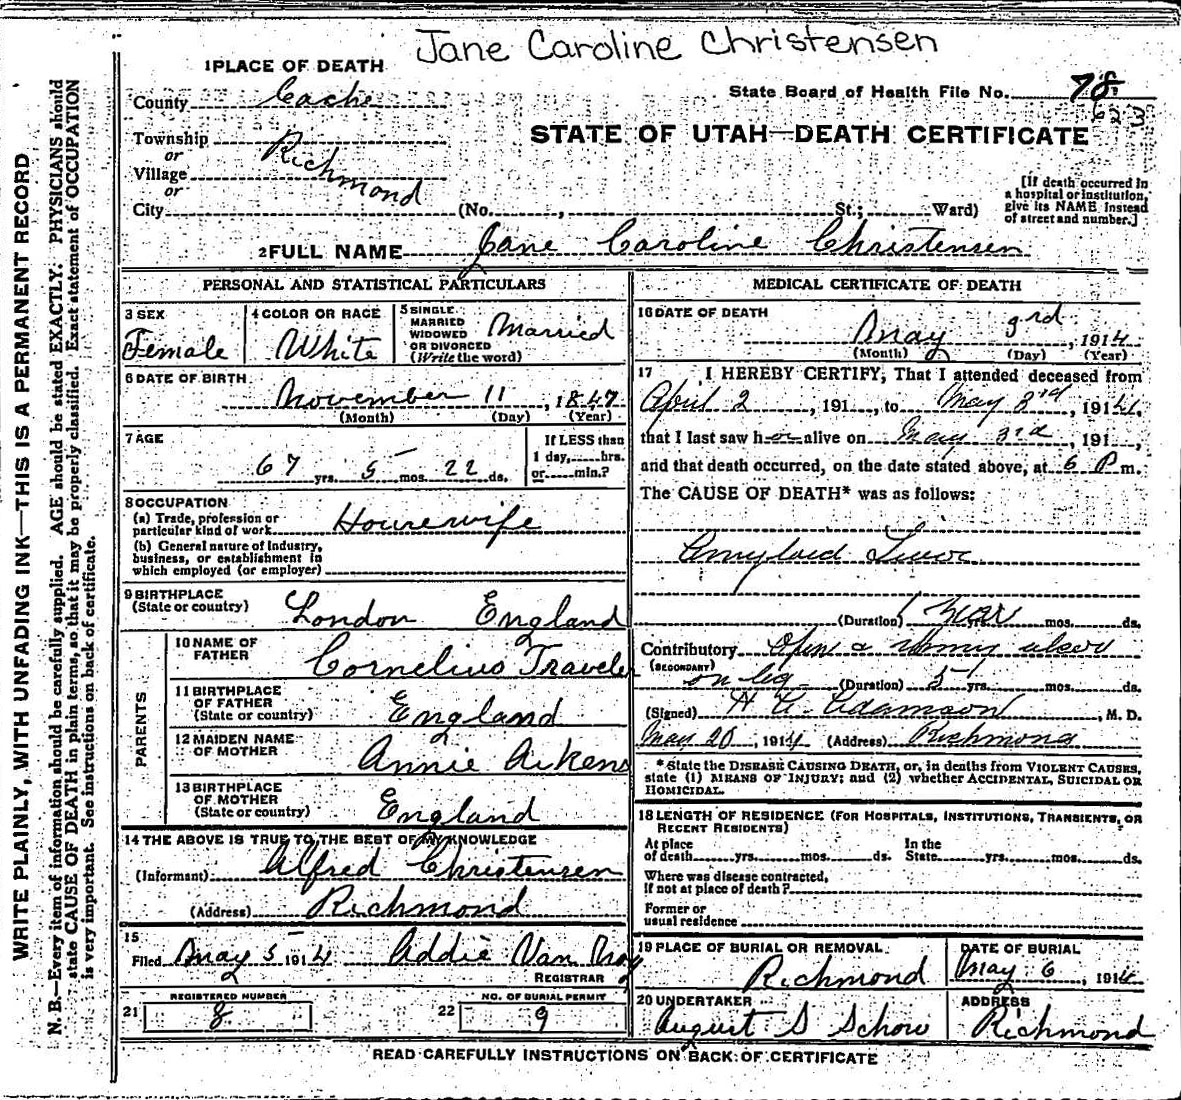 Jane Caroline Christensen
1 PLACE OF DEATH
County Cache
State Board of Health File No. 78
623
Township
or
Village Richmond
or
City (No. , St.; Ward)
STATE OF UTAH—DEATH CERTIFICATE
[If death occurred in
a hospital or institution,
give its NAME instead
of street and number.]
2 FULL NAME Jane Caroline Christensen
PERSONAL AND STATISTICAL PARTICULARS
3 SEX
Female
4 COLOR OR RACE
White
5 SINGLE
MARRIED
WIDOWED
OR DIVORCED
(Write the word)
Married
6 DATE OF BIRTH
November 11, 1847
(Month) (Day) (Year)
7 AGE
67 yrs. 5 mos. 22 ds.
If LESS than
1 day, hrs.
or min.?
8 OCCUPATION
(a) Trade, profession or
particular kind of work Housewife
(b) General nature of industry,
business, or establishment in
which employed (or employer)
9 BIRTHPLACE
(State or country) London England
PARENTS
10 NAME OF
FATHER Cornelius Traveler
11 BIRTHPLACE
OF FATHER
(State or country) England
12 MAIDEN NAME
OF MOTHER Annie Aikens
13 BIRTHPLACE
OF MOTHER
(State or country) England
14 THE ABOVE IS TRUE TO THE BEST OF MY KNOWLEDGE
(Informant) Alfred Christensen
(Address) Richmond
15
Filed May 5 1914 Addie Van
REGISTRAR
21 REGISTERED NUMBER
8
22 NO. OF BURIAL PERMIT
9
MEDICAL CERTIFICATE OF DEATH
16 DATE OF DEATH
May 3rd, 1914
(Month) (Day) (Year)
17 I HEREBY CERTIFY, That I attended deceased from
April 2, 191 , to May 3rd, 1914,
that I last saw her alive on May 3rd, 191 ,
and that death occurred, on the date stated above, at 6 P m.
The CAUSE OF DEATH* was as follows:
Amyloid Liver
(Duration) 1 Year yrs. mos. ds.
Contributory Open & ulcers
(SECONDARY) on leg (Duration) 5 yrs. mos. ds.
(Signed) Adamson, M. D.
May 20, 1914 (Address) Richmond
*State the DISEASE CAUSING DEATH, or, in deaths from VIOLENT CAUSES,
state (1) MEANS OF INJURY; and (2) whether ACCIDENTAL, SUICIDAL OR
HOMICIDAL.
18 LENGTH OF RESIDENCE (FOR HOSPITALS, INSTITUTIONS, TRANSIENTS, OR
RECENT RESIDENTS)
At place
of death yrs. mos. ds.
In the
State yrs. mos. ds.
Where was disease contracted,
if not at place of death?
Former or
usual residence
19 PLACE OF BURIAL OR REMOVAL
Richmond
DATE OF BURIAL
May 6, 1914
20 UNDERTAKER
August S Schow
ADDRESS
Richmond
READ CAREFULLY INSTRUCTIONS ON BACK OF CERTIFICATE
WRITE PLAINLY, WITH UNFADING INK—THIS IS A PERMANENT RECORD
N. B.—Every item of information should be carefully supplied. AGE should be stated EXACTLY. PHYSICIANS should
state CAUSE OF DEATH in plain terms, so that it may be properly classified. Exact statement of OCCUPATION
is very important. See instructions on back of certificate.